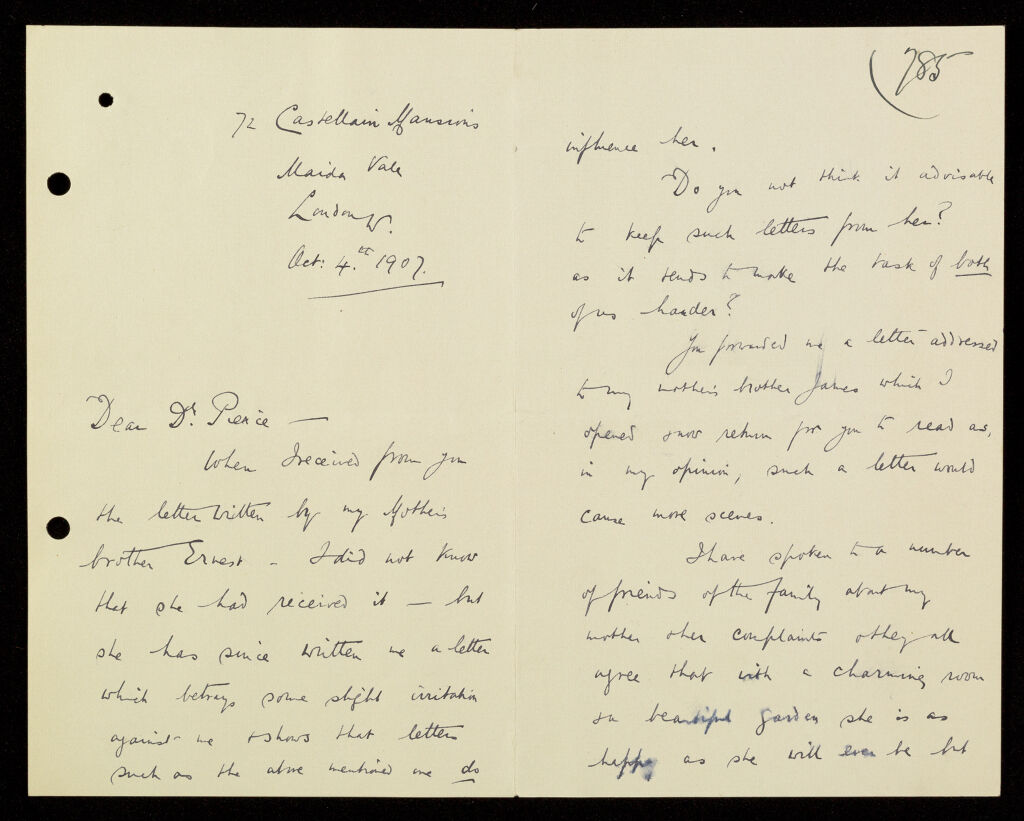 72 Castellain Mansions
Maida Vale
London W.
Oct: 4.th 1907.
Dear Dr. Pierce —
When I received from you
the letter written by my Mother's
brother Ernest - I did not know
that she had received it — but
she has since written me a letter
which betrays some slight irritation
against me & shows that letters
such as the above mentioned one do
785
influence her.
Do you not think it advisable
to keep such letters from her?
as it tends to make the task of both
of us harder?
You forwarded me a letter addressed
to my mother's brother James which I
opened & now return for you to read as,
in my opinion, such a letter would
cause more scenes.
I have spoken to a number
of friends of the family about my
mother & her complaints & they all
agree that with a charming room
& a beautiful garden she is as
happy as she will ever be but